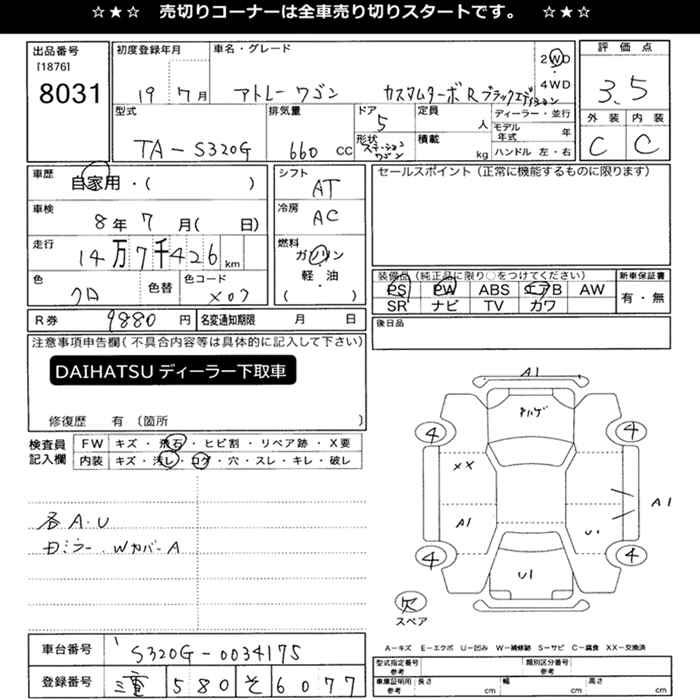 ☆★☆ 売切りコーナーは全車売り切りスタートです。 ☆★☆
出品番号
[1876]
8031
初度登録年月
19 7月
車名・グレード
アトレー ワゴン カスタムターボR ブラックエディション
2WD
4WD
評価点
3.5
外装 内装
C C
型式
TA-S320G
排気量
660 cc
ドア
5
形状
ステーションワゴン
定員
人
積載
kg
ディーラー・並行
モデル年式 年
ハンドル 左・右
車歴
自家用・( )
車検
8年7月( 日)
走行
14万7千426km
色
クロ
色替
色コード
X07
シフト
AT
冷房
AC
燃料
ガソリン
軽・油
( )
セールスポイント(正常に機能するものに限ります)
装備品(純正品に限り○をつけてください)
PS PW ABS エアB AW
SR ナビ TV カワ
新車保証書
有・無
R券 9880円
名変通知期限 月 日
後日品
注意事項申告欄(不具合内容等は具体的に記入して下さい)
DAIHATSU ディーラー下取車
修復歴 有 〔箇所 〕
検査員記入欄
FW キズ・飛石・ヒビ割・リペア跡・X要
内装 キズ・汚レ・コゲ・穴・スレ・キレ・破レ
各A.U
Dミラー.WカバーA
A1
4 4
XX
A1
A1
U1
4 4
U1
欠
スペア
A-キズ E-エクボ U-凹み W-補修跡 S-サビ C-腐食 XX-交換済
車台番号 S320G-0034175
登録番号 三重 580 そ 6077
型式指定番号
参考
類別区分番号
参考
車庫証明用
参考
長さ cm
幅 cm
高さ cm